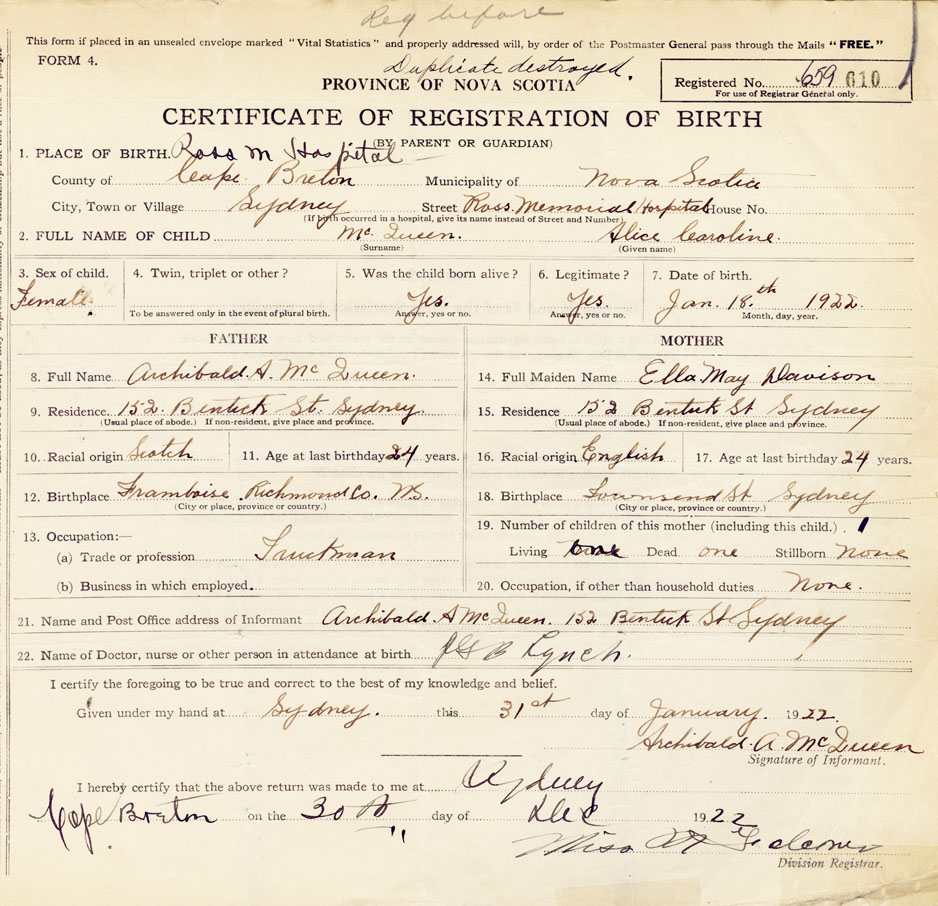 Reg before
This form if placed in an unsealed envelope marked "Vital Statistics" and properly addressed will, by order of the Postmaster General pass through the Mails "FREE."
FORM 4.
Duplicate destroyed.
PROVINCE OF NOVA SCOTIA
Registered No. 659 610
For use of Registrar General only.
CERTIFICATE OF REGISTRATION OF BIRTH
(BY PARENT OR GUARDIAN)
1. PLACE OF BIRTH. Ross M Hospital
County of Cape Breton Municipality of Nova Scotia
City, Town or Village Sydney Street Ross Memorial Hospital House No.
(If birth occurred in a hospital, give its name instead of Street and Number)
2. FULL NAME OF CHILD McQueen. Alice Caroline.
(Surname) (Given name)
3. Sex of child. 4. Twin, triplet or other? 5. Was the child born alive? 6. Legitimate? 7. Date of birth.
Female. Yes. Yes. Jan. 18.th 1922
To be answered only in the event of plural birth. Answer, yes or no. Answer, yes or no. Month, day, year.
FATHER MOTHER
8. Full Name Archibald. A. McQueen. 14. Full Maiden Name Ella May Davison
9. Residence. 152 Bentick St. Sydney. 15. Residence 152 Bentick St Sydney
(Usual place of abode.) If non-resident, give place and province. (Usual place of abode.) If non-resident, give place and province.
10. Racial origin Scotch 11. Age at last birthday 24 years. 16. Racial origin English 17. Age at last birthday 24 years.
12. Birthplace Framboise Richmond Co. N.S. 18. Birthplace Townsend St Sydney
(City or place, province or country.) (City or place, province or country.)
13. Occupation:— 19. Number of children of this mother (including this child.) 1
(a) Trade or profession Truckman Living one Dead one Stillborn none
(b) Business in which employed. 20. Occupation, if other than household duties None.
21. Name and Post Office address of Informant Archibald. A McQueen. 152 Bentick St Sydney
22. Name of Doctor, nurse or other person in attendance at birth Lynch.
I certify the foregoing to be true and correct to the best of my knowledge and belief.
Given under my hand at Sydney. this 31st day of January. 1922.
Archibald. A. McQueen
Signature of Informant.
I hereby certify that the above return was made to me at Sydney
Cape Breton on the 30th day of Dec 1922
Miss
Division Registrar.